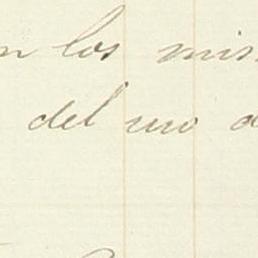 n los mis
del uso d